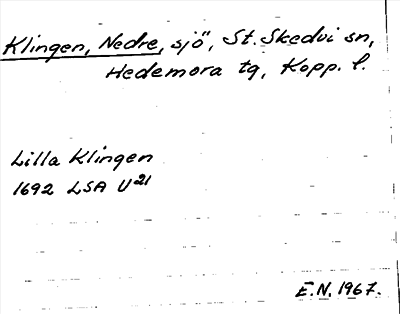 Klingen, Nedre, sjö, St. Skedvi sn,
Hedemora tg, Kopp. l.
Lilla Klingen
1692 LSA U 21
E.N. 1967.